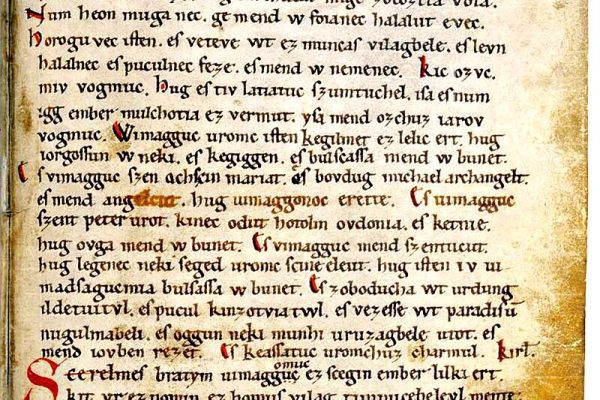 zocoztia vola.
Num heon muga nec. ge mend w foianec halalut evec.
horogu vec isten. es veteve wt ez muncas vilagbele. es levn
halalnec es puculnec feze. es mend w nemenec. Kic ozvc.
miv vogmuc. hug es tiv latiatuc szumtuchel. isa es num
igg ember mulchotia ez vermut. ysa mend ozchuz iarov
vogmuc. Wimagguc uromc isten kegilmet ez lelic ert. hug
iorgossun w neki. es kegiggen. es bulscassa mend w bunet.
Es vimagguc szen achscin mariat. es bovdug michael archangelt.
es mend angelcut. hug uimaggonoc erette. Es uimagguc
szent peter urot. kinec odut hotolm ovdonia. es ketnie.
hug ovga mend w bunet. Es vimagguc mend szentucut.
hug legenec neki seged uromc scine eleut. hug isten iv ui
madsagucmia bulsassa w bunet. Es zoboducha wt urdung
ildetuitul. es pucul kinzotviatwl. es vezesse wt paradisū
nugulmabeli. es oggun neki munhi uruzagbele utot. es
mend iovben rezet. Es keassatuc uromchuz charmul. kirl.
Scerelmes bratym uimagguc omuc ez scegin ember lilki ert.
kit vr ez nopun ez homus vilag timnucebelevl mente.